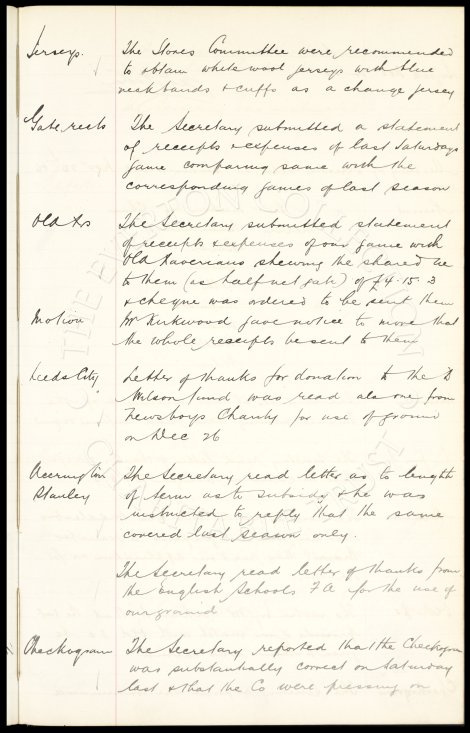 Jerseys. The Stores Committee were recommended
to obtain white wool jerseys with blue
neckbands & cuffs as a change jersey
Gate rects The Secretary submitted a statement
of receipts & expenses of last Saturdays
game comparing same with the
corresponding games of last season
Old Xs The Secretary submitted statement
of receipts & expenses of our game with
Old Xaverians shewing the shared due
to them (as half net gate) of £4.15.3
& cheque was ordered to be sent them
Motion Mr Kirkwood gave notice to move that
the whole receipts be sent to them
Leeds City, Letter of thanks for donation to the D
Wilson fund was read also one from
Newsboys Charity for use of ground
on Dec 26
Accrington The Secretary read letter as to length
Stanley of term as to subsidy & he was
instructed to reply that the same
covered last season only.
The Secretary read letter of thanks from
the English Schools F A for the use of
our ground
Checkogram The Secretary reported that the Checkogram
was substantially correct on Saturday
last & that the Co were pressing on